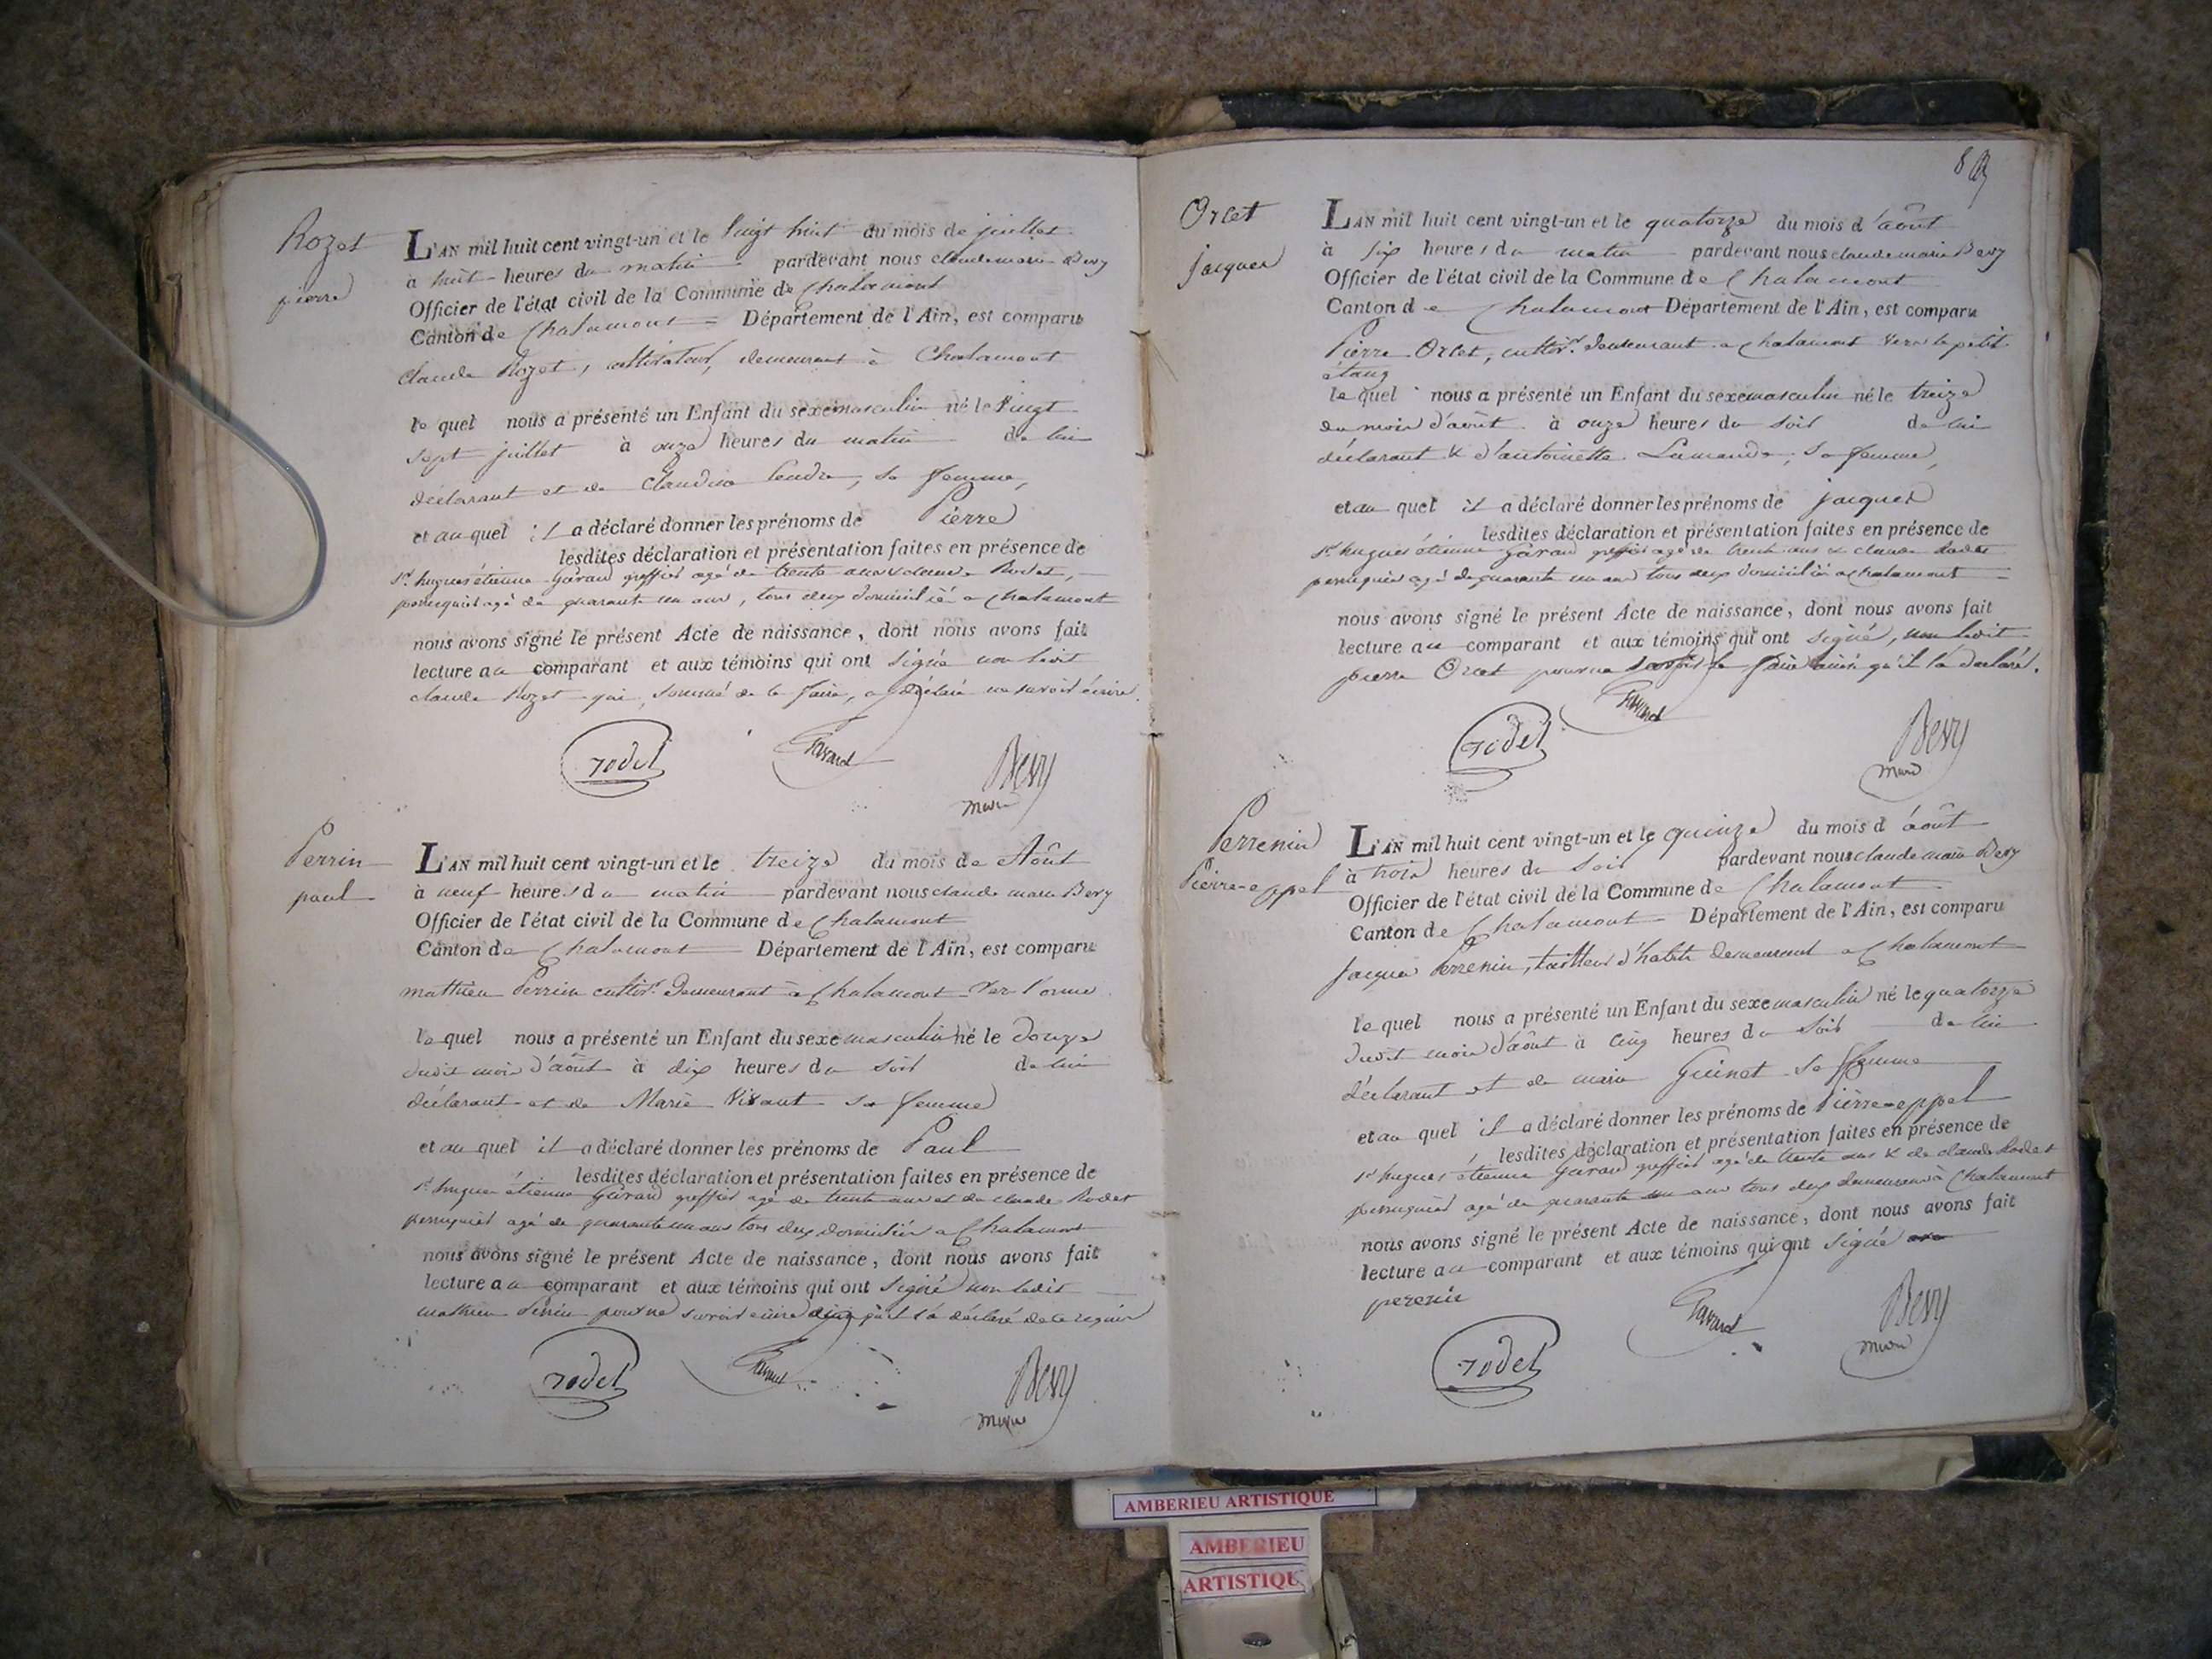 Rozet
pierre
L'AN mil huit cent vingt-un et le vingt huit du mois de juillet
à huit heures du matin pardevant nous claude marie Bevy
Officier de l'état civil de la Commune de Chalamont
Canton de Chalamont Département de l'Ain, est comparu
claude Rozet, cultivateur, demeurant à Chalamont
le quel nous a présenté un Enfant du sexe masculin né le vingt
sept juillet à onze heures du matin de lui
déclarant et de Claudine, sa femme,
et au quel il a déclaré donner les prénoms de Pierre
lesdites déclaration et présentation faites en présence de
sr. hugues étienne Gavand greffier agé de trente ans & claude Rodet,
perruquier agé de quarante un ans, tous deux domiciliés a Chalamont
nous avons signé le présent Acte de naissance, dont nous avons fait
lecture au comparant et aux témoins qui ont signé non ledit
claude Rozet qui, sommé de le faire, a déclaré ne savoir écrire.
rodet Gavand Bevy
maire
Perrin
paul
L'AN mil huit cent vingt-un et le treize du mois de Août
à neuf heures du matin pardevant nous claude marie Bevy
Officier de l'état civil de la Commune de Chalamont
Canton de Chalamont Département de l'Ain, est comparu
mathieu Perrin cultivr. demeurant à Chalamont
le quel nous a présenté un Enfant du sexe masculin né le douze
dudit mois d'août à dix heures du soir de lui
déclarant et de Marie sa femme
et au quel il a déclaré donner les prénoms de Paul
lesdites déclaration et présentation faites en présence de
sr. hugues étienne Gavand greffier agé de trente ans et de claude Rodet
perruquier agé de quarante un ans tous deux domiciliés a Chalamont
nous avons signé le présent Acte de naissance, dont nous avons fait
lecture au comparant et aux témoins qui ont signé non ledit
mathieu Perrin pour ne savoir écrire ainsi qu'il l'a déclaré de ce requis
rodet Gavand Bevy
maire
Orcet
jacques
L'AN mil huit cent vingt-un et le quatorze du mois d'août
à six heures du matin pardevant nous claude marie Bevy
Officier de l'état civil de la Commune de Chalamont
Canton de Chalamont Département de l'Ain, est comparu
Pierre Orcet, cultivr. demeurant a Chalamont vers le petit
étang
le quel nous a présenté un Enfant du sexe masculin né le treize
du mois d'août à onze heures du soir de lui
déclarant & d'antoinette, sa femme,
et au quel il a déclaré donner les prénoms de jacques
lesdites déclaration et présentation faites en présence de
sr. hugues étienne Gavand greffier agé de trente ans & claude Rodet
perruquier agé de quarante un ans tous deux domiciliés a Chalamont
nous avons signé le présent Acte de naissance, dont nous avons fait
lecture au comparant et aux témoins qui ont signé, non ledit
pierre Orcet pour ne savoir le faire ainsi qu'il l'a déclaré.
rodet Gavand Bevy
maire
Perrenin
Pierre-eppel
L'AN mil huit cent vingt-un et le quinze du mois d'août
à trois heures du soir pardevant nous claude marie Bevy
Officier de l'état civil de la Commune de Chalamont
Canton de Chalamont Département de l'Ain, est comparu
Jacques Perrenin, tailleur d'habits demeurant a Chalamont
le quel nous a présenté un Enfant du sexe masculin né le quatorze
dudit mois d'août à cinq heures du soir de lui
déclarant et de marie Guinet sa femme
et au quel il a déclaré donner les prénoms de Pierre-eppel
lesdites déclaration et présentation faites en présence de
sr. hugues étienne Gavand greffier agé de trente ans & de claude Rodet
perruquier agé de quarante un ans tous deux demeurant à Chalamont
nous avons signé le présent Acte de naissance, dont nous avons fait
lecture au comparant et aux témoins qui ont signé
perenin
rodet Gavand Bevy
maire
AMBERIEU ARTISTIQUE
AMBERIEU
ARTISTIQU